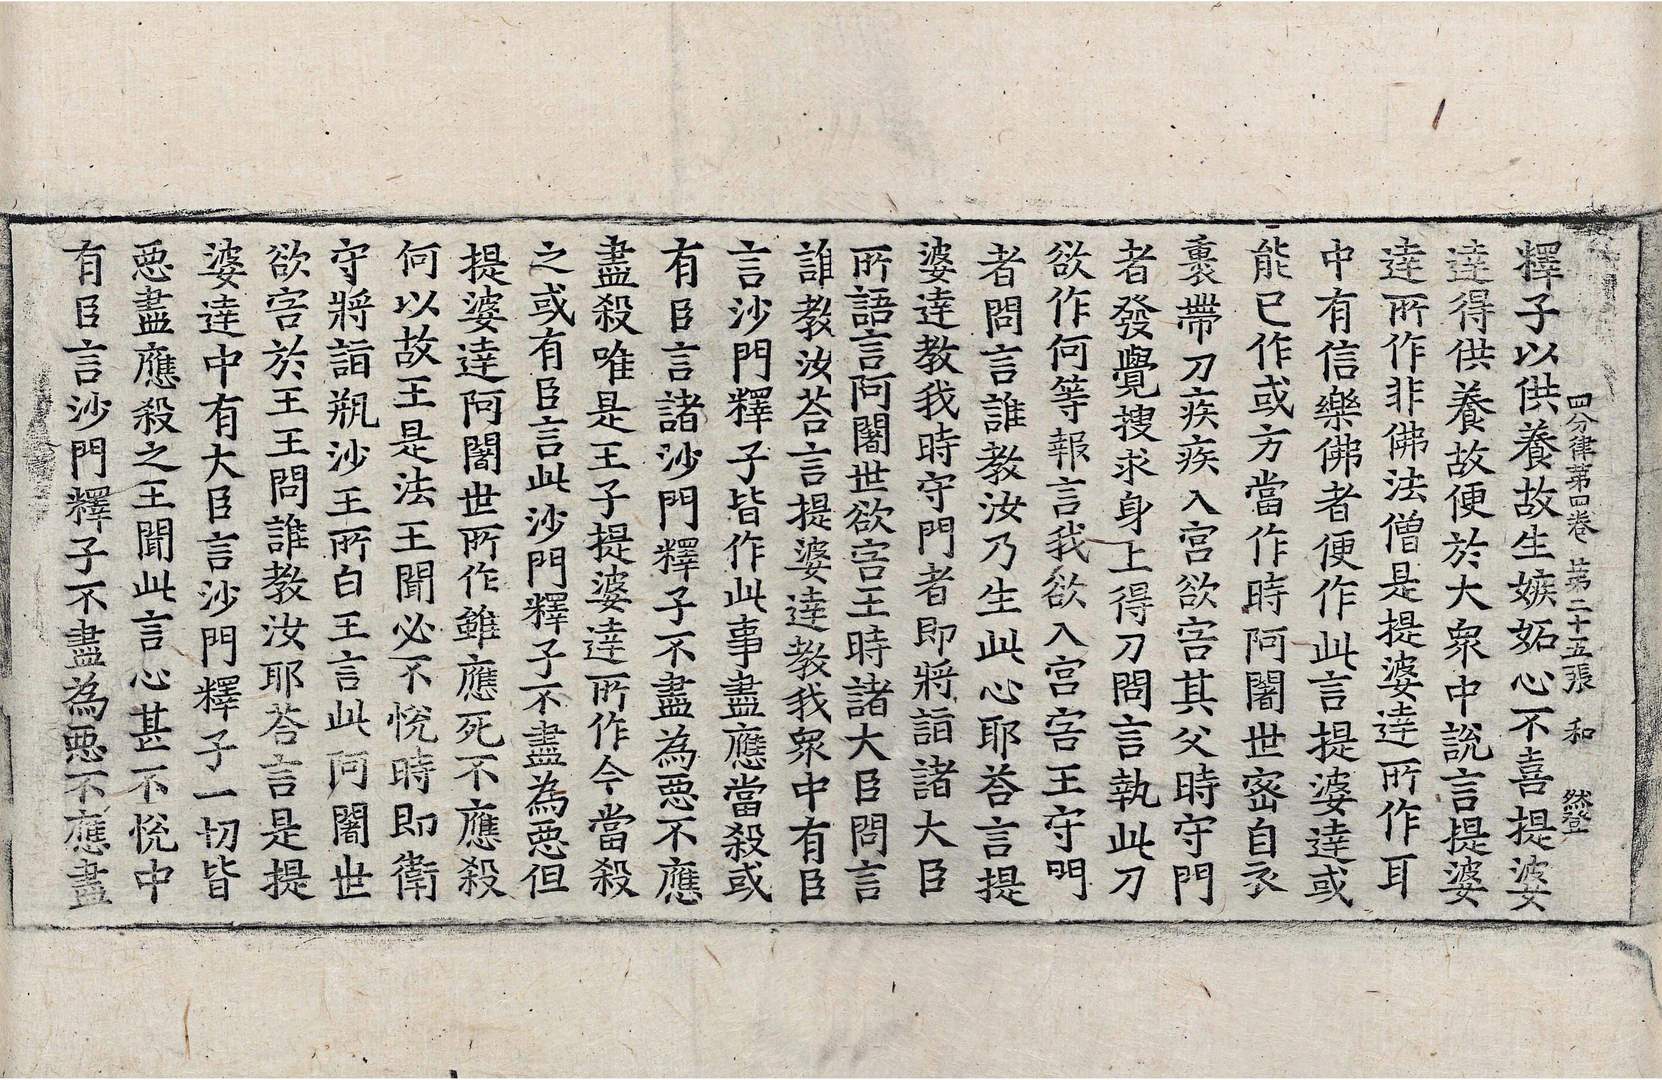 四分律第四卷 第二十五張 和 然登
釋子以供養故生嫉妬心不喜提婆
達得供養故便於大衆中說言提婆
達所作非佛法僧是提婆達所作耳
中有信樂佛者便作此言提婆達或
能已作或方當作時阿闍世密自衣
裏帶刀疾疾入宮欲害其父時守門
者發覺搜求身上得刀問言執此刀
欲作何等報言我欲入宮害王守門
者問言誰教汝乃生此心耶荅言提
婆達教我時守門者即將詣諸大臣
所語言阿闍世欲害王時諸大臣問言
誰教汝荅言提婆達教我衆中有臣
言沙門釋子皆作此事盡應當殺或
有臣言諸沙門釋子不盡為惡不應
盡殺唯是王子提婆達所作今當殺
之或有臣言此沙門釋子不盡為惡但
提婆達阿闍世所作雖應死不應殺
何以故王是法王聞必不悅時即衛
守將詣瓶沙王所白王言此阿闍世
欲害於王王問誰教汝耶荅言是提
婆達中有大臣言沙門釋子一切皆
惡盡應殺之王聞此言心甚不悅中
有臣言沙門釋子不盡為惡不應盡